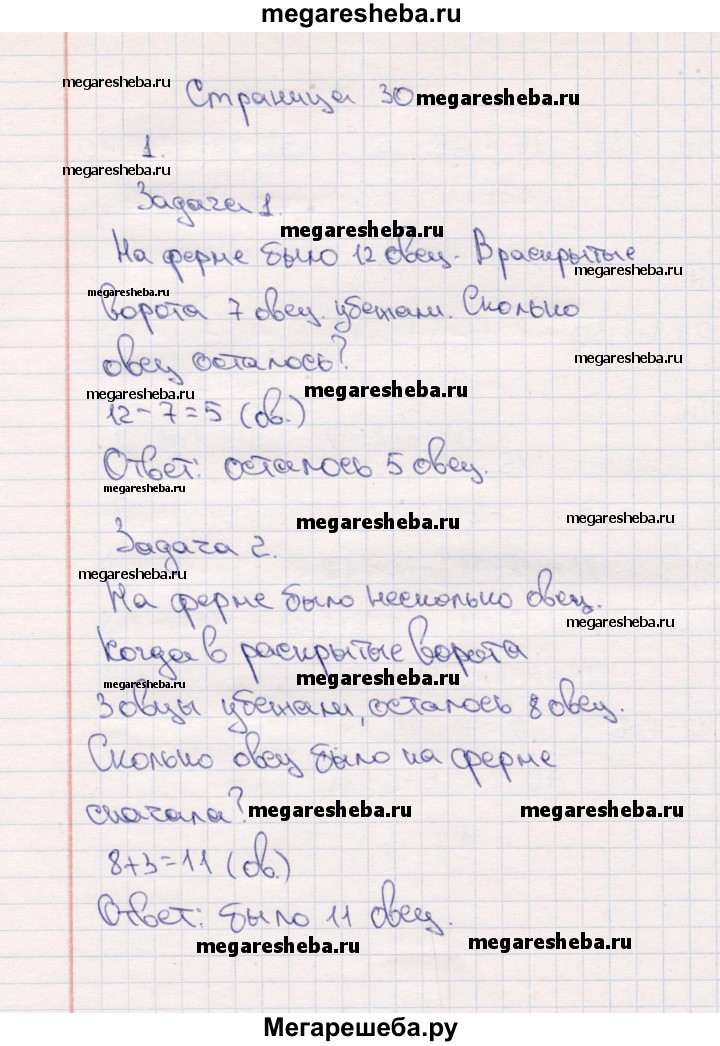 megaresheba.ru
megaresheba.ru
Страница 30 megaresheba.ru
1.
megaresheba.ru
Задача 1.
megaresheba.ru
На ферме было 12 овец. В раскрытые
megaresheba.ru
megaresheba.ru
ворота 7 овец убежали. Сколько
овец осталось?
megaresheba.ru
megaresheba.ru
megaresheba.ru
12 - 7 = 5 (ов.)
Ответ: осталось 5 овец.
megaresheba.ru
megaresheba.ru
megaresheba.ru
Задача 2.
megaresheba.ru
На ферме было несколько овец.
megaresheba.ru
Когда в раскрытые ворота
megaresheba.ru
megaresheba.ru
3 овцы убежали, осталось 8 овец.
Сколько овец было на ферме
сначала? megaresheba.ru megaresheba.ru
8+3=11 (ов.)
Ответ: было 11 овец.
megaresheba.ru megaresheba.ru
Мегарешеба.ру